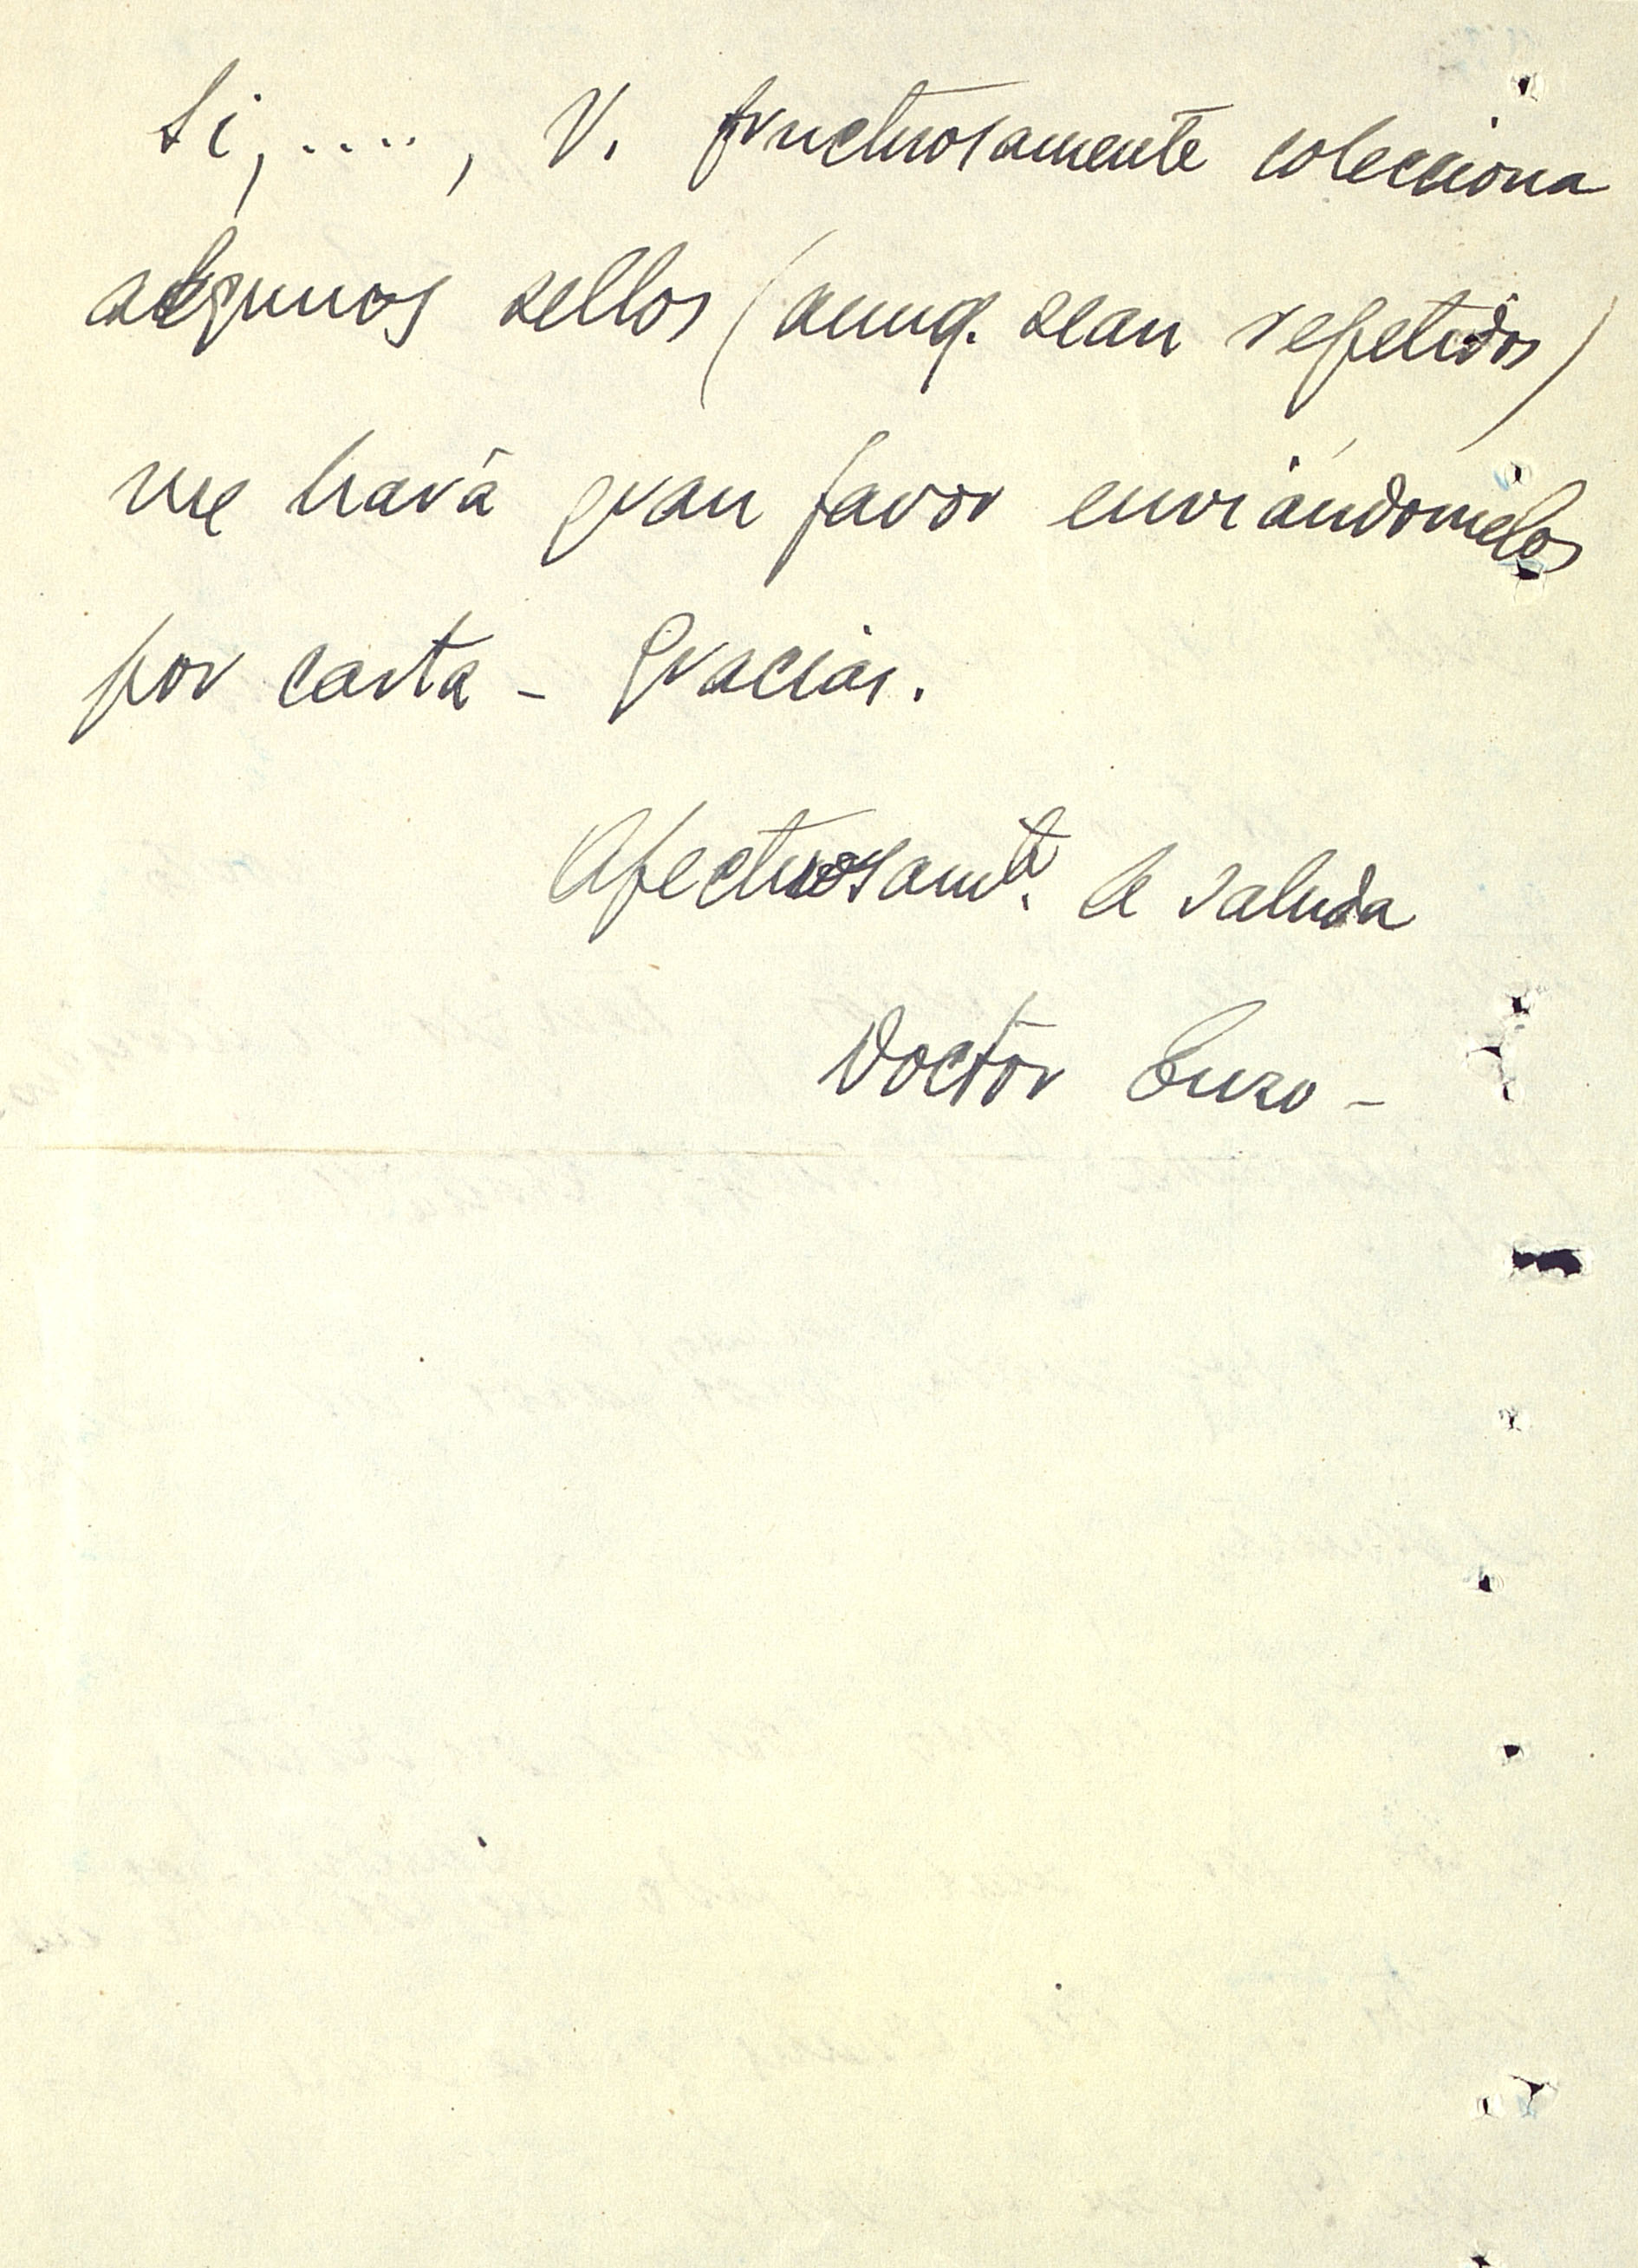 Si, ...., V. fructuosamente colecciona
algunos sellos (aunq. sean repetidos)
me hará gran favor enviándomelos
por carta - Gracias.
Afectuosamte. le saluda
Doctor